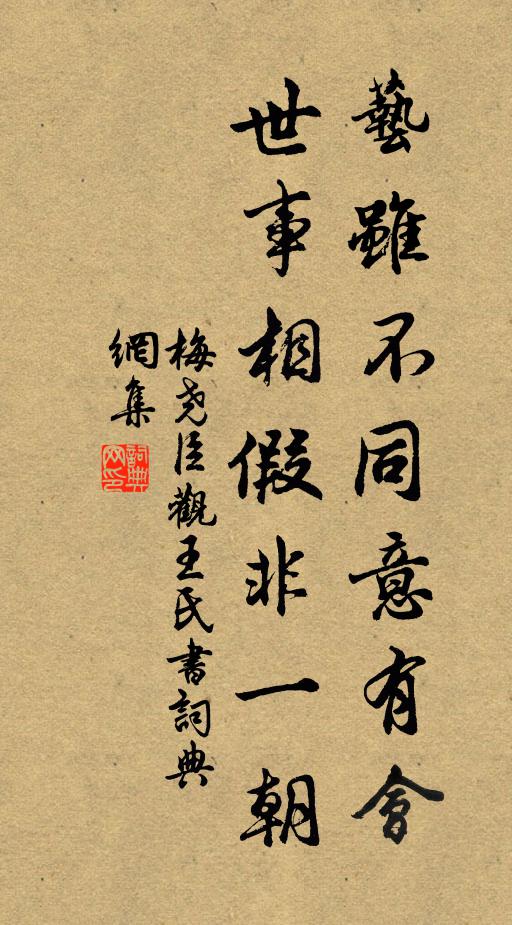 藝雖不同意有會
世事相假非一朝
梅尧臣觀王氏書詞典
網集
詞典
网印